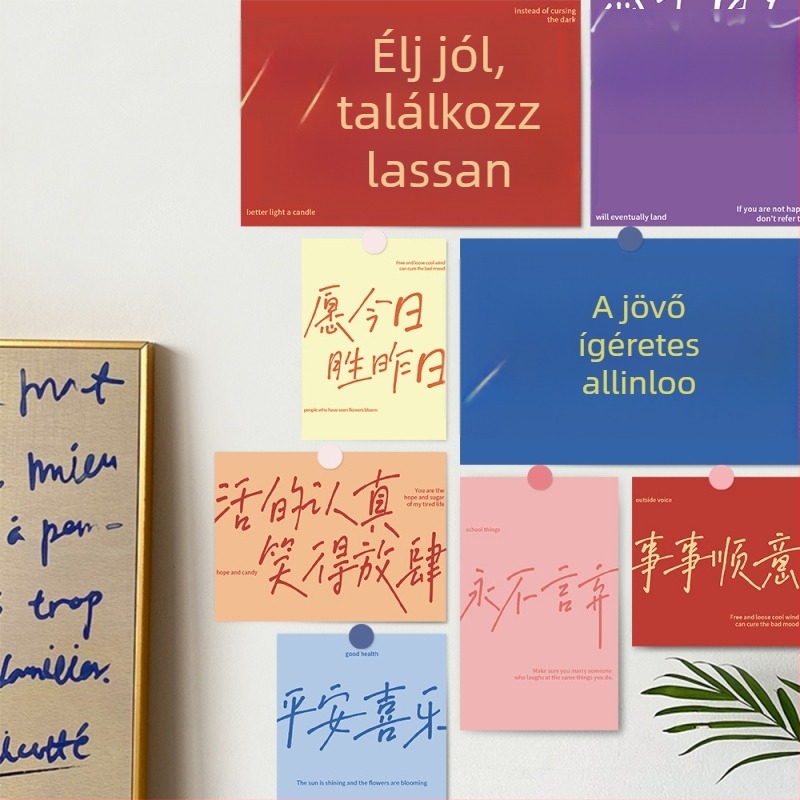 instead of cursing
the dark
Élj jól,
találkozz
lassan
better light a candle
will eventually land
If you are not hap
don't refer t
Free and loose cool wind
can cure the bad mood
愿今日
胜昨日
people who have seen flowers bloom
A jövő
ígéretes
allinloo
活的认真
笑得放肆
You are the
hope and sugar
of my tired life
hope and candy
school things
永不言弃
Make sure you marry someone
who laughs at the same things you do.
outside voice
事事顺意
Free and loose cool wind
can cure the bad mood
good health
平安喜乐
The sun is shining and the flowers are blooming
mieu
à pen-
trop